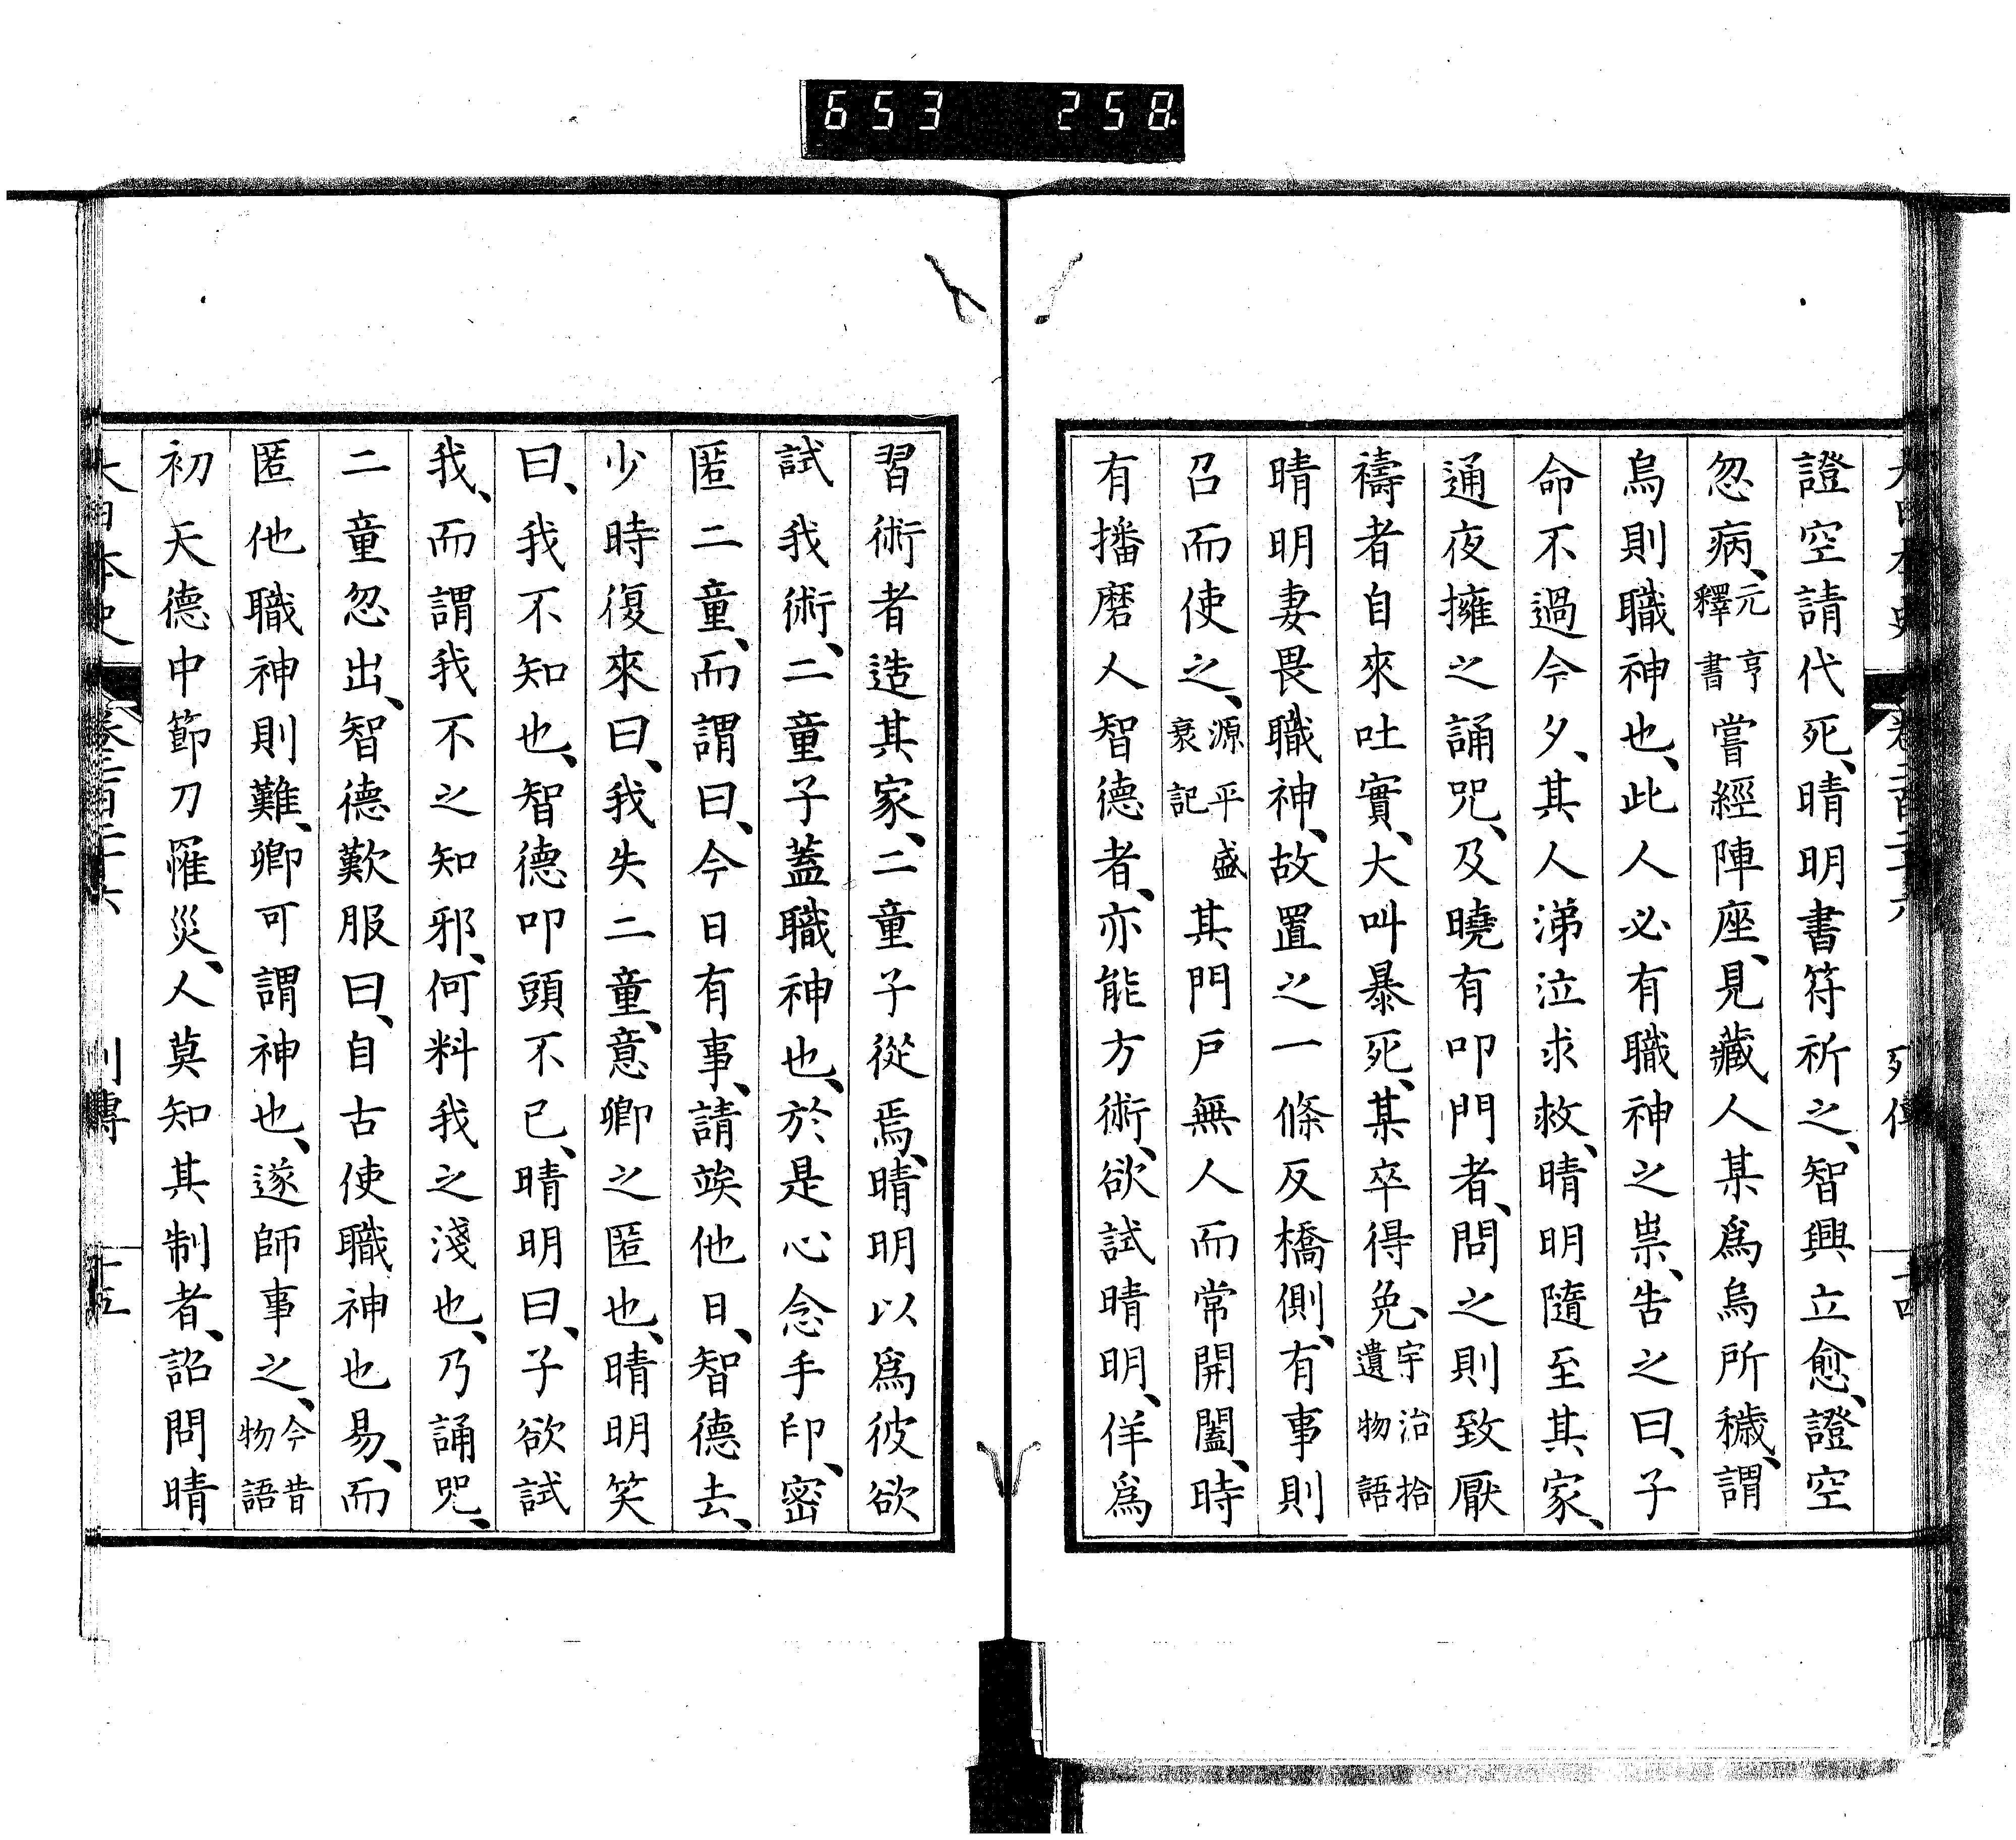 653 258
大日本史 卷二百二十六 列傳 十四
證空請代死、晴明書符祈之、智興立愈、證空
忽病、元亨釋書嘗經陣座、見藏人某爲烏所穢、謂
烏則職神也、此人必有職神之祟、告之曰、子
命不過今夕、其人涕泣求救、晴明隨至其家、
通夜擁之誦咒、及曉有叩門者、問之則致厭
禱者自來吐實、大叫暴死、某卒得免、宇治拾遺物語
晴明妻畏職神、故置之一條反橋側、有事則
召而使之、源平盛衰記其門戶無人而常開闔、時
有播磨人智德者、亦能方術、欲試晴明、佯爲
習術者造其家、二童子從焉、晴明以爲彼欲
試我術、二童子蓋職神也、於是心念手印、密
匿二童、而謂曰、今日有事、請竢他日、智德去、
少時復來曰、我失二童、意卿之匿也、晴明笑
曰、我不知也、智德叩頭不已、晴明曰、子欲試
我、而謂我不之知邪、何料我之淺也、乃誦咒、
二童忽出、智德歎服曰、自古使職神也易、而
匿他職神則難、卿可謂神也、遂師事之、今昔物語
初天德中節刀罹災、人莫知其制者、詔問晴
大日本史 卷二百二十六 列傳 十五